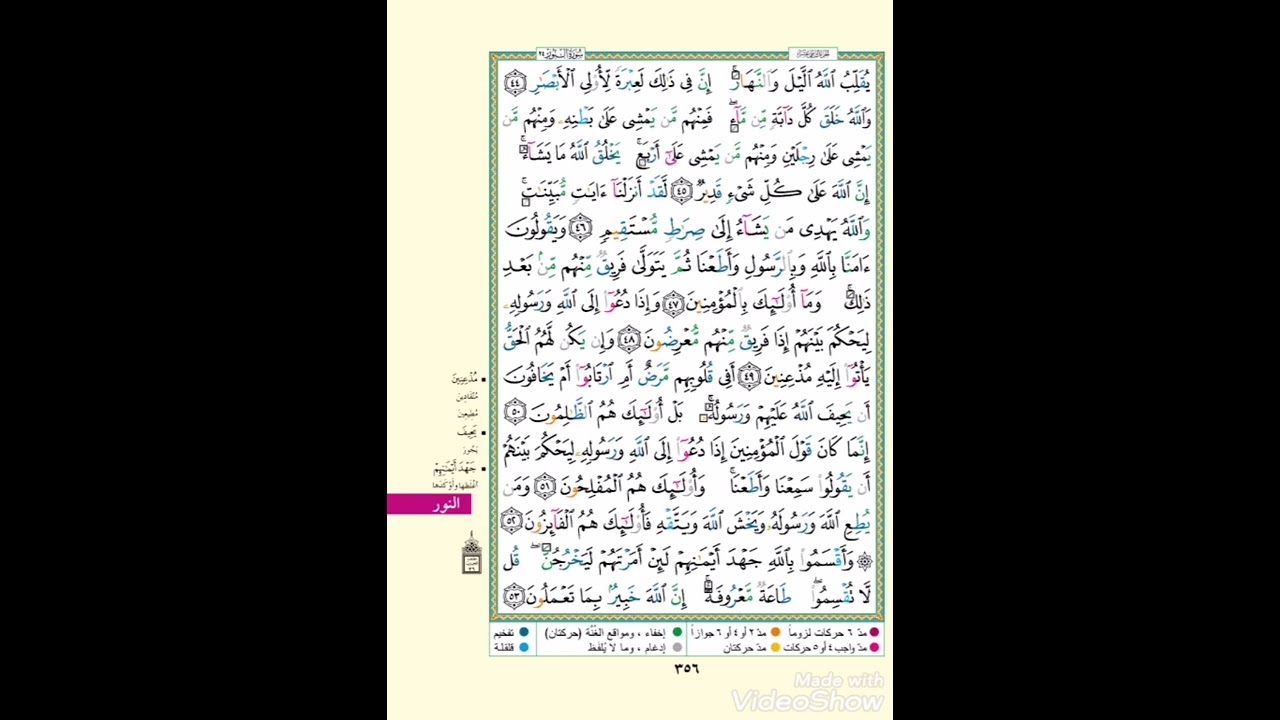 سُورَةُ النُّورِ ٢٤
يُقَلِّبُ ٱللَّهُ ٱلَّيْلَ وَٱلنَّهَارَ ۚ إِنَّ فِى ذَٰلِكَ لَعِبْرَةً لِّأُو۟لِى ٱلْأَبْصَـٰرِ ٤٤
وَٱللَّهُ خَلَقَ كُلَّ دَآبَّةٍ مِّن مَّآءٍ ۖ فَمِنْهُم مَّن يَمْشِى عَلَىٰ بَطْنِهِۦ وَمِنْهُم مَّن
يَمْشِى عَلَىٰ رِجْلَيْنِ وَمِنْهُم مَّن يَمْشِى عَلَىٰٓ أَرْبَعٍ ۚ يَخْلُقُ ٱللَّهُ مَا يَشَآءُ ۚ
إِنَّ ٱللَّهَ عَلَىٰ كُلِّ شَىْءٍ قَدِيرٌ ٤٥ لَّقَدْ أَنزَلْنَآ ءَايَـٰتٍ مُّبَيِّنَـٰتٍ ۚ
وَٱللَّهُ يَهْدِى مَن يَشَآءُ إِلَىٰ صِرَٰطٍ مُّسْتَقِيمٍ ٤٦ وَيَقُولُونَ
ءَامَنَّا بِٱللَّهِ وَبِٱلرَّسُولِ وَأَطَعْنَا ثُمَّ يَتَوَلَّىٰ فَرِيقٌ مِّنْهُم مِّنۢ بَعْدِ
ذَٰلِكَ ۚ وَمَآ أُو۟لَـٰٓئِكَ بِٱلْمُؤْمِنِينَ ٤٧ وَإِذَا دُعُوٓا۟ إِلَى ٱللَّهِ وَرَسُولِهِۦ
لِيَحْكُمَ بَيْنَهُمْ إِذَا فَرِيقٌ مِّنْهُم مُّعْرِضُونَ ٤٨ وَإِن يَكُن لَّهُمُ ٱلْحَقُّ
يَأْتُوٓا۟ إِلَيْهِ مُذْعِنِينَ ٤٩ أَفِى قُلُوبِهِم مَّرَضٌ أَمِ ٱرْتَابُوٓا۟ أَمْ يَخَافُونَ
أَن يَحِيفَ ٱللَّهُ عَلَيْهِمْ وَرَسُولُهُۥ ۚ بَلْ أُو۟لَـٰٓئِكَ هُمُ ٱلظَّـٰلِمُونَ ٥٠
إِنَّمَا كَانَ قَوْلَ ٱلْمُؤْمِنِينَ إِذَا دُعُوٓا۟ إِلَى ٱللَّهِ وَرَسُولِهِۦ لِيَحْكُمَ بَيْنَهُمْ
أَن يَقُولُوا۟ سَمِعْنَا وَأَطَعْنَا ۚ وَأُو۟لَـٰٓئِكَ هُمُ ٱلْمُفْلِحُونَ ٥١ وَمَن
يُطِعِ ٱللَّهَ وَرَسُولَهُۥ وَيَخْشَ ٱللَّهَ وَيَتَّقْهِ فَأُو۟لَـٰٓئِكَ هُمُ ٱلْفَآئِزُونَ ٥٢
۞ وَأَقْسَمُوا۟ بِٱللَّهِ جَهْدَ أَيْمَـٰنِهِمْ لَئِنْ أَمَرْتَهُمْ لَيَخْرُجُنَّ ۖ قُل
لَّا تُقْسِمُوا۟ ۖ طَاعَةٌ مَّعْرُوفَةٌ ۚ إِنَّ ٱللَّهَ خَبِيرٌۢ بِمَا تَعْمَلُونَ ٥٣
▪ مُذْعِنِينَ
مُنْقَادِينَ
مُطِيعِينَ
▪ يَحِيفَ
يَجُورَ
▪ جَهْدَ أَيْمَـٰنِهِمْ
أغْلَظَها وأوْكَدَها
النور
● مدّ ٦ حركات لزوماً ● مدّ ٢ أو ٤ أو ٦ جوازاً ● إخفاء ، ومواقع الغُنَّة (حركتان) ● تفخيم
● مدّ واجب ٤ أو ٥ حركات ● مدّ حركتان ● إدغام ، وما لا يُلفَظ ● قلقلة
٣٥٦
Made with
VideoShow